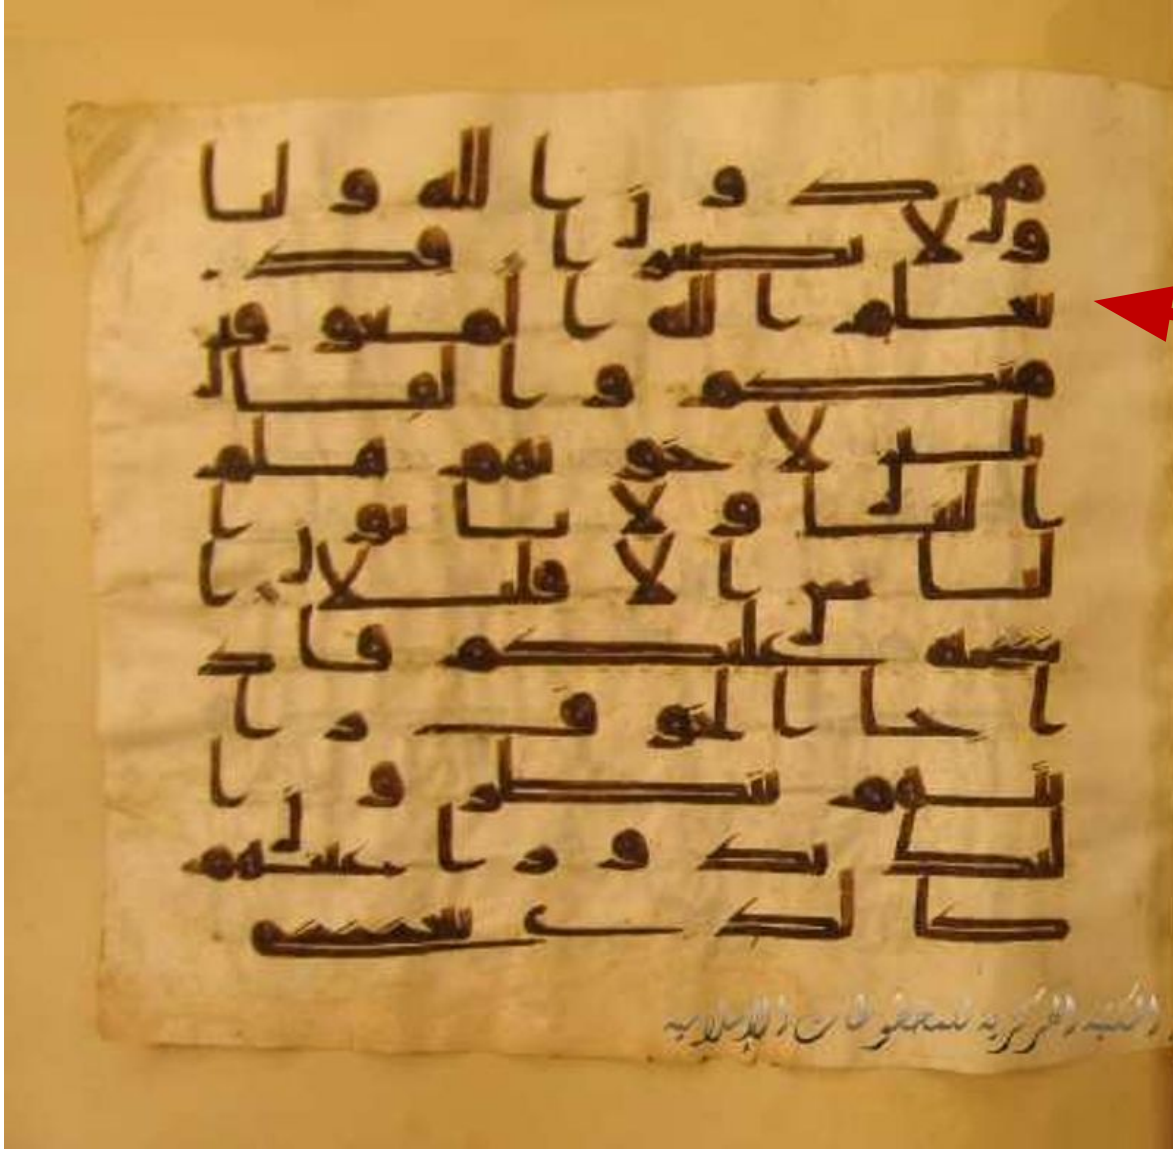 من دون الله وليا
ولا نصيرا قد
يعلم الله المعوقين
منكم والقا
ئلين لاخونهم هلم
الينا ولا ياتون ا
لباس الا قليلا ا
شحة عليكم فاذ
ا جا الخوف را
يتهم ينظرون ا
ليك تدور اعينهم
كالذي يغشى
المكتبة المركزية للمخطوطات الإسلامية